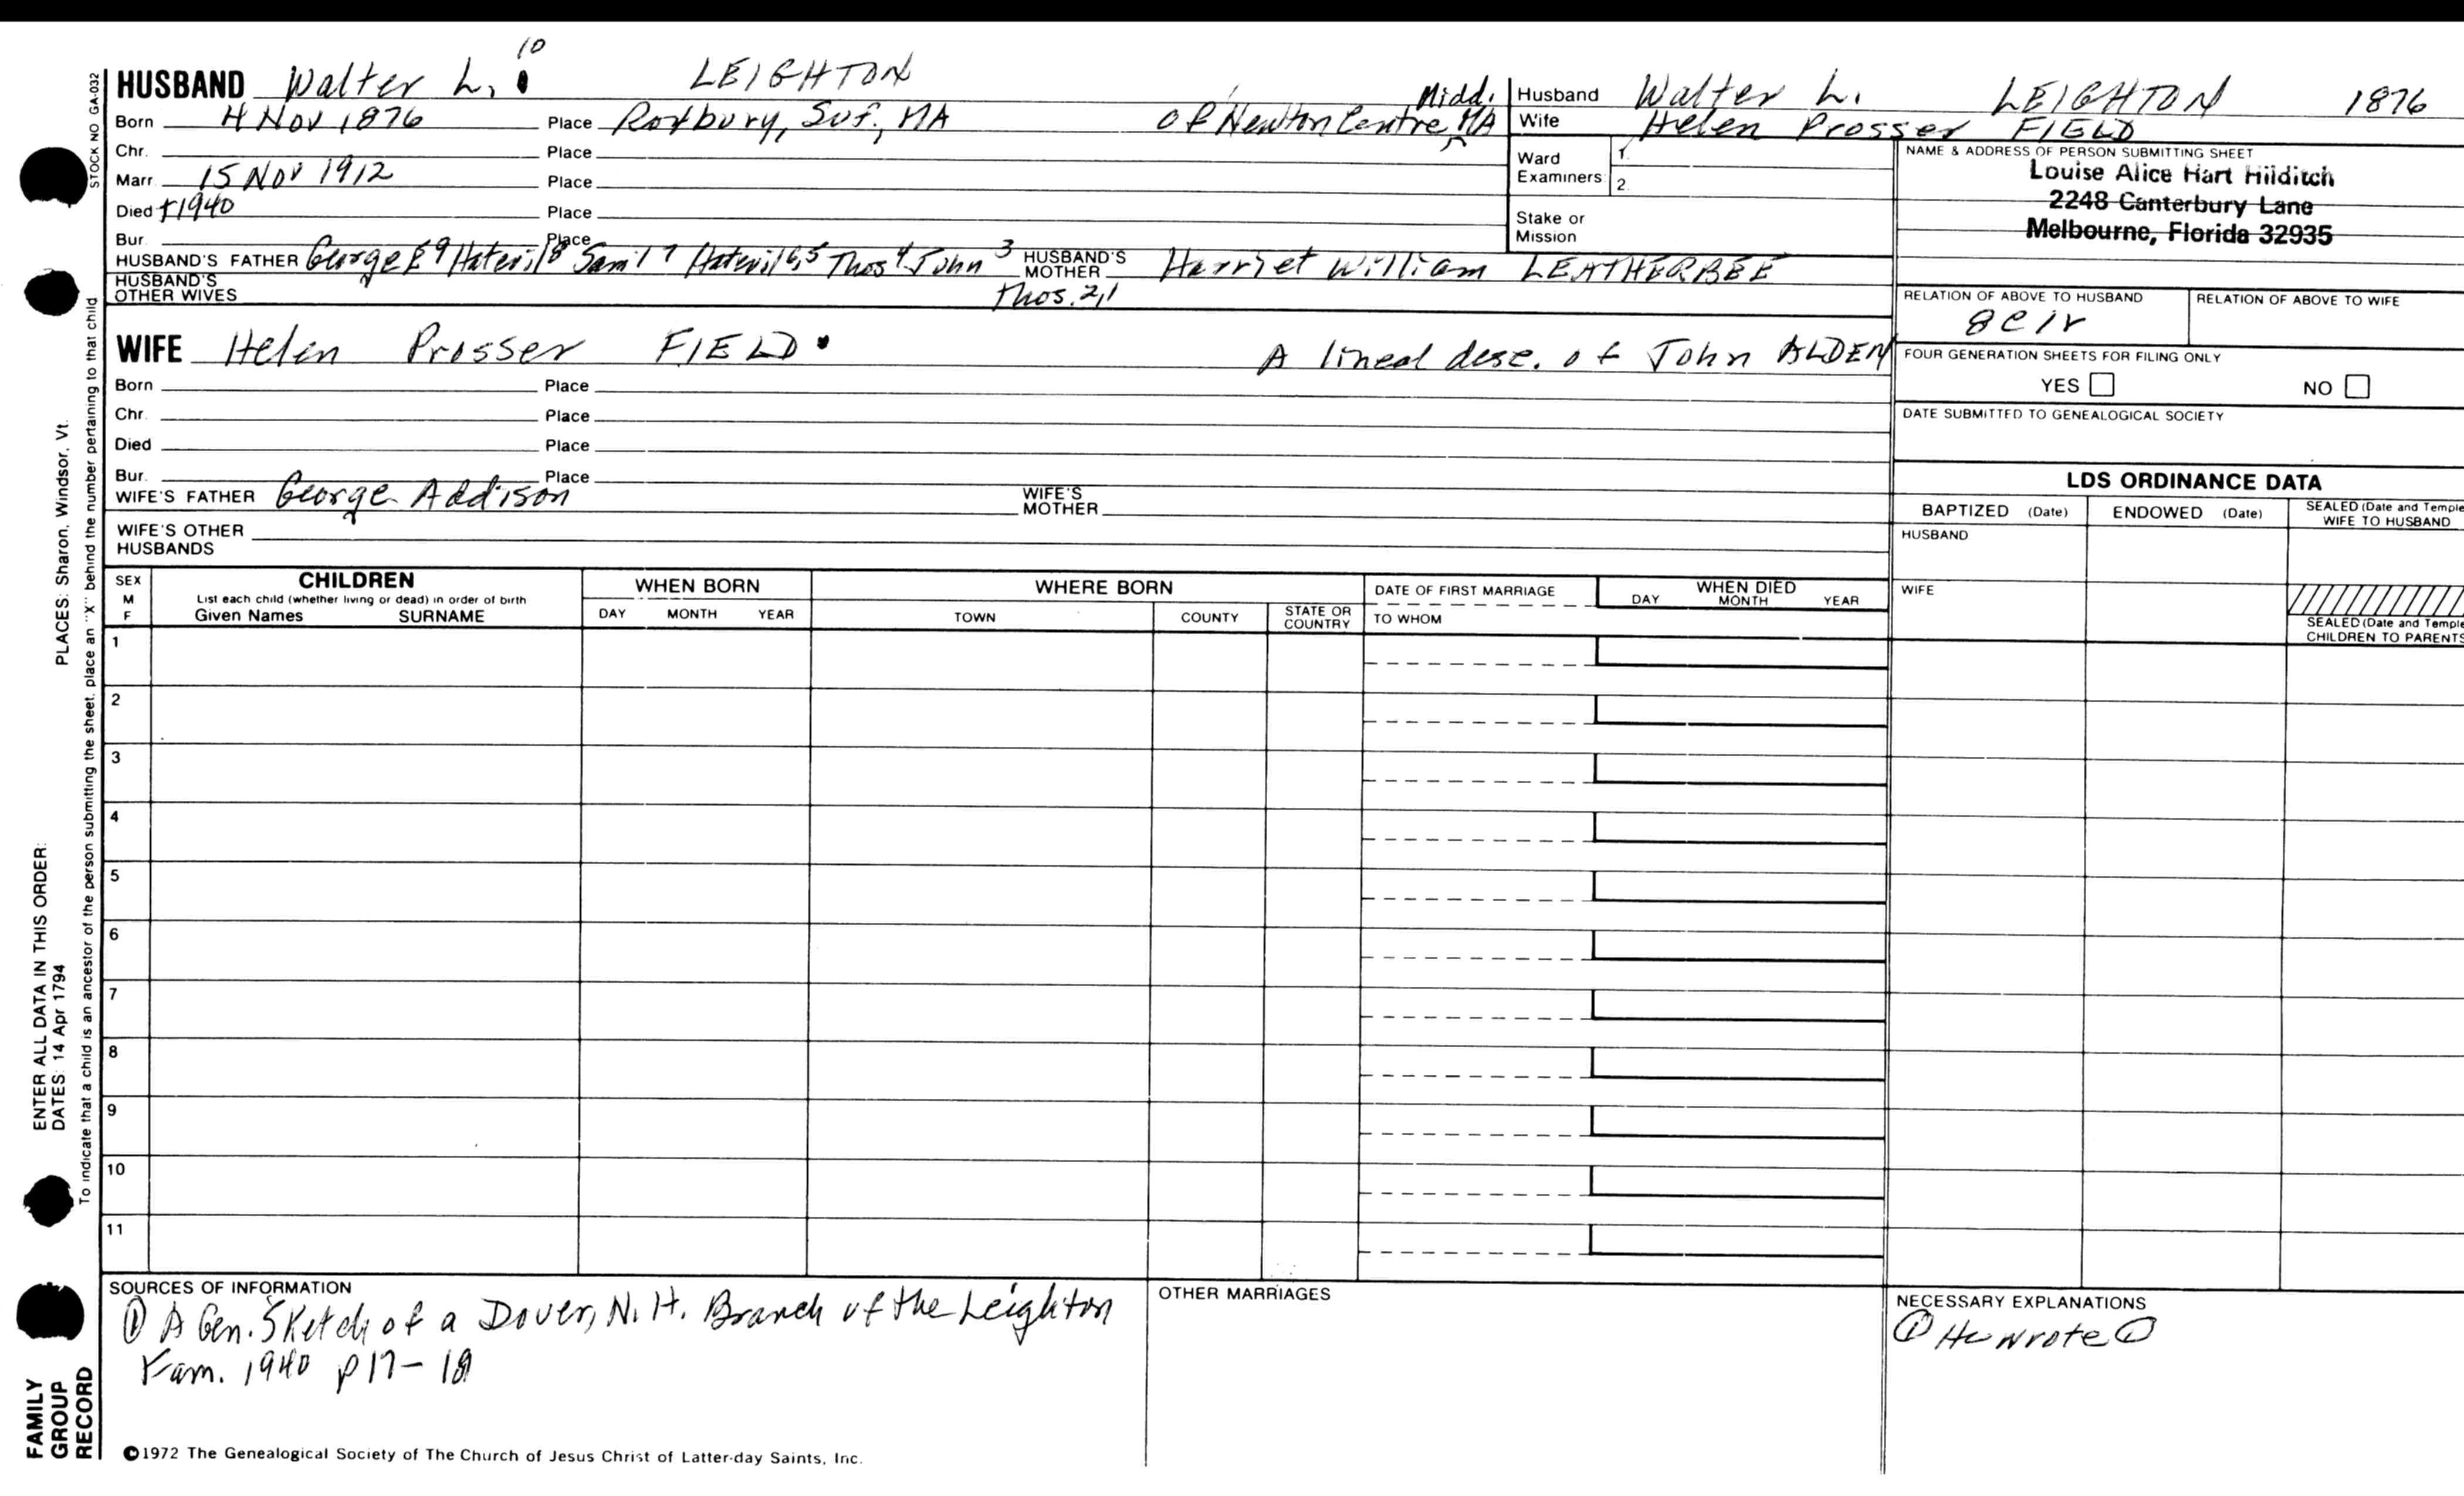 10
HUSBAND Walter L. LEIGHTON
Born 4 Nov 1876 Place Roxbury, Suf., MA of Newton Centre, Midd. MA
Chr. Place
Marr. 15 Nov 1912 Place
Died +1940 Place
Bur. Place
HUSBAND'S FATHER George E 9 Hatevil 8 Sam'l 7 Hatevil 6,5 Thos 4 John 3 Thos. 2,1 HUSBAND'S MOTHER Harriet William LEATHERBEE
HUSBAND'S OTHER WIVES
WIFE Helen Prosser FIELD A lineal desc. of John ALDEN
Born Place
Chr. Place
Died Place
Bur. Place
WIFE'S FATHER George Addison WIFE'S MOTHER
WIFE'S OTHER HUSBANDS
Husband Walter L. LEIGHTON 1876
Wife Helen Prosser FIELD
Ward Examiners 1. 2.
Stake or Mission
NAME & ADDRESS OF PERSON SUBMITTING SHEET
Louise Alice Hart Hilditch
2248 Canterbury Lane
Melbourne, Florida 32935
RELATION OF ABOVE TO HUSBAND RELATION OF ABOVE TO WIFE
FOUR GENERATION SHEETS FOR FILING ONLY
YES NO
DATE SUBMITTED TO GENEALOGICAL SOCIETY
LDS ORDINANCE DATA
BAPTIZED (Date) ENDOWED (Date) SEALED (Date and Temple
WIFE TO HUSBAND
HUSBAND
WIFE
SEALED (Date and Temple
CHILDREN TO PARENTS
SEX M F
CHILDREN
List each child (whether living or dead) in order of birth
Given Names SURNAME
WHEN BORN
DAY MONTH YEAR
WHERE BORN
TOWN COUNTY STATE OR COUNTRY
DATE OF FIRST MARRIAGE
TO WHOM
WHEN DIED
DAY MONTH YEAR
1
2
3
4
5
6
7
8
9
10
11
SOURCES OF INFORMATION
① A Gen. Sketch of a Dover, N.H. Branch of the Leighton
Fam. 1940 p 17-18
OTHER MARRIAGES
NECESSARY EXPLANATIONS
① He wrote ①
©1972 The Genealogical Society of The Church of Jesus Christ of Latter-day Saints, Inc.
STOCK NO GA-032
To indicate that a child is an ancestor of the person submitting the sheet, place an "X" behind the number pertaining to that child
ENTER ALL DATA IN THIS ORDER:
DATES: 14 Apr 1794 PLACES: Sharon, Windsor, Vt.
FAMILY
GROUP
RECORD